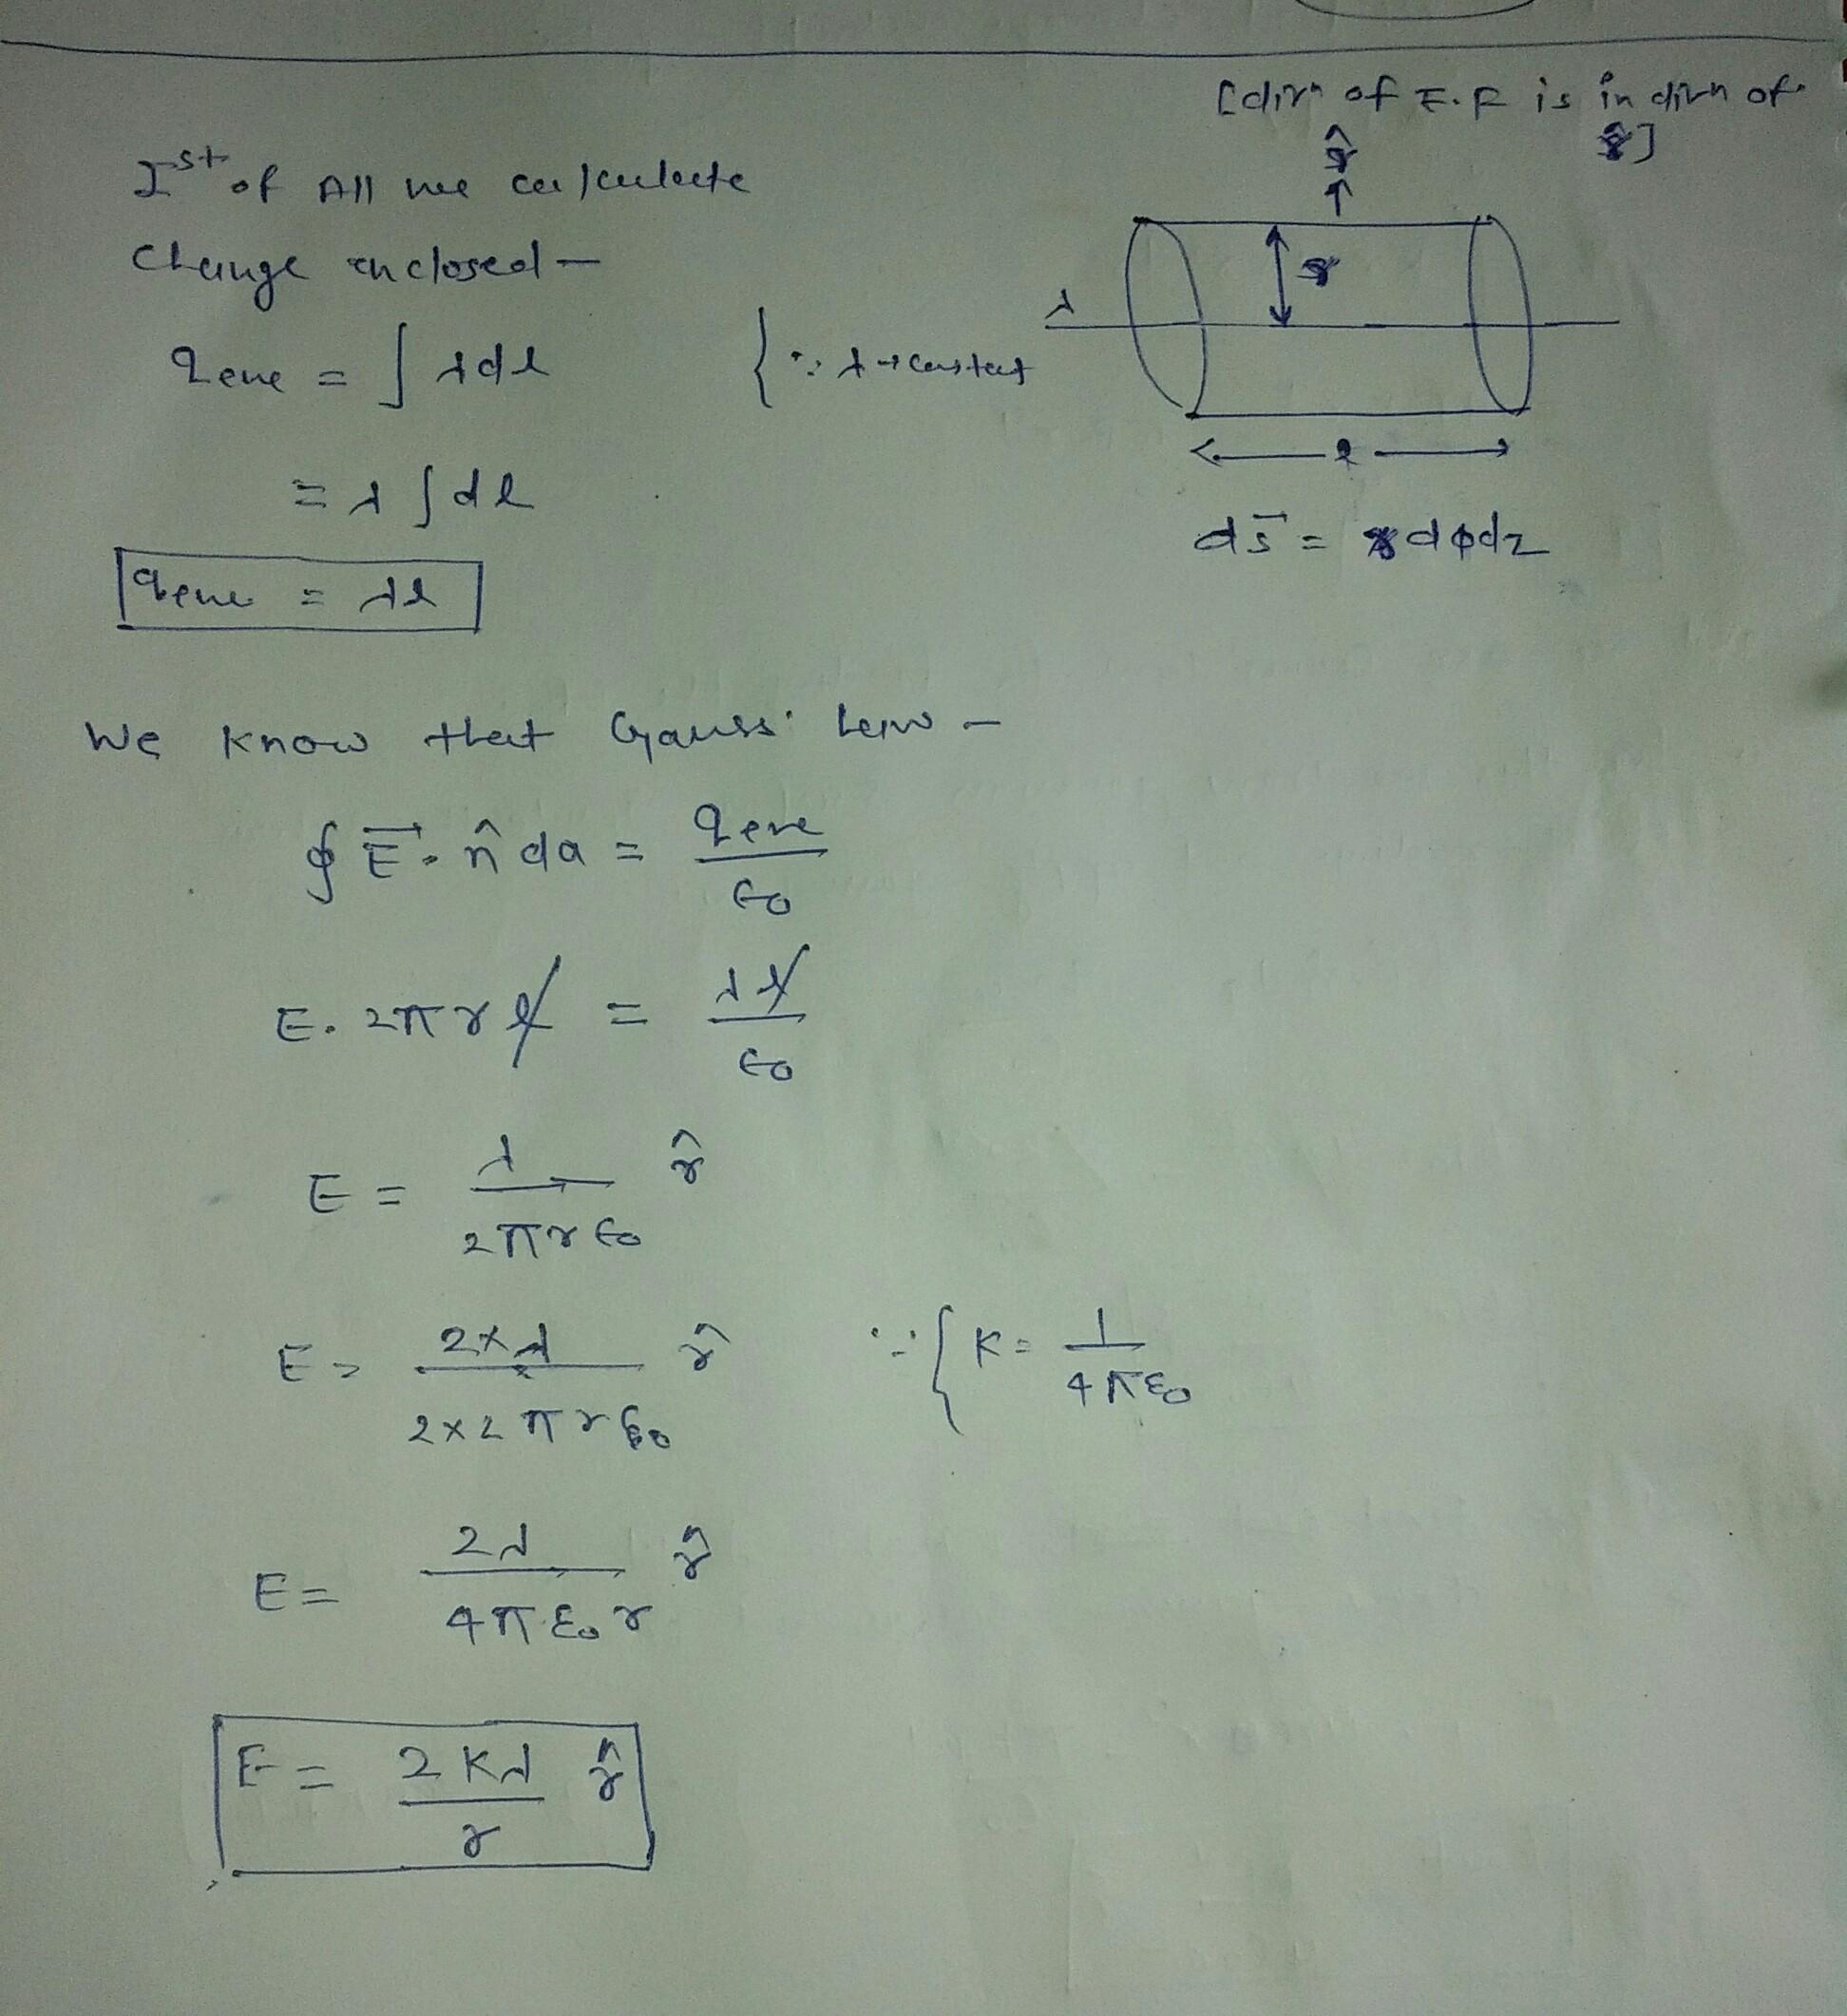 [dirⁿ of E.F is in dirn of
r̂]
r̂
Iˢᵗ of All we calculate
Charge enclosed –
r
λ
qenc = ∫ λdl { ∵ λ → constant
l
= λ ∫dl
ds⃗ = rdϕdz
qenc = λl
We know that Gauss' Law –
∮ E⃗ . n̂ da = qenc / ϵ₀
E. 2πrl = λl / ϵ₀
E = λ / 2πrϵ₀ r̂
E = 2×λ / 2×2πrϵ₀ r̂ ∵ { K = 1 / 4πε₀
E = 2λ / 4πε₀r r̂
E = 2Kλ / r r̂